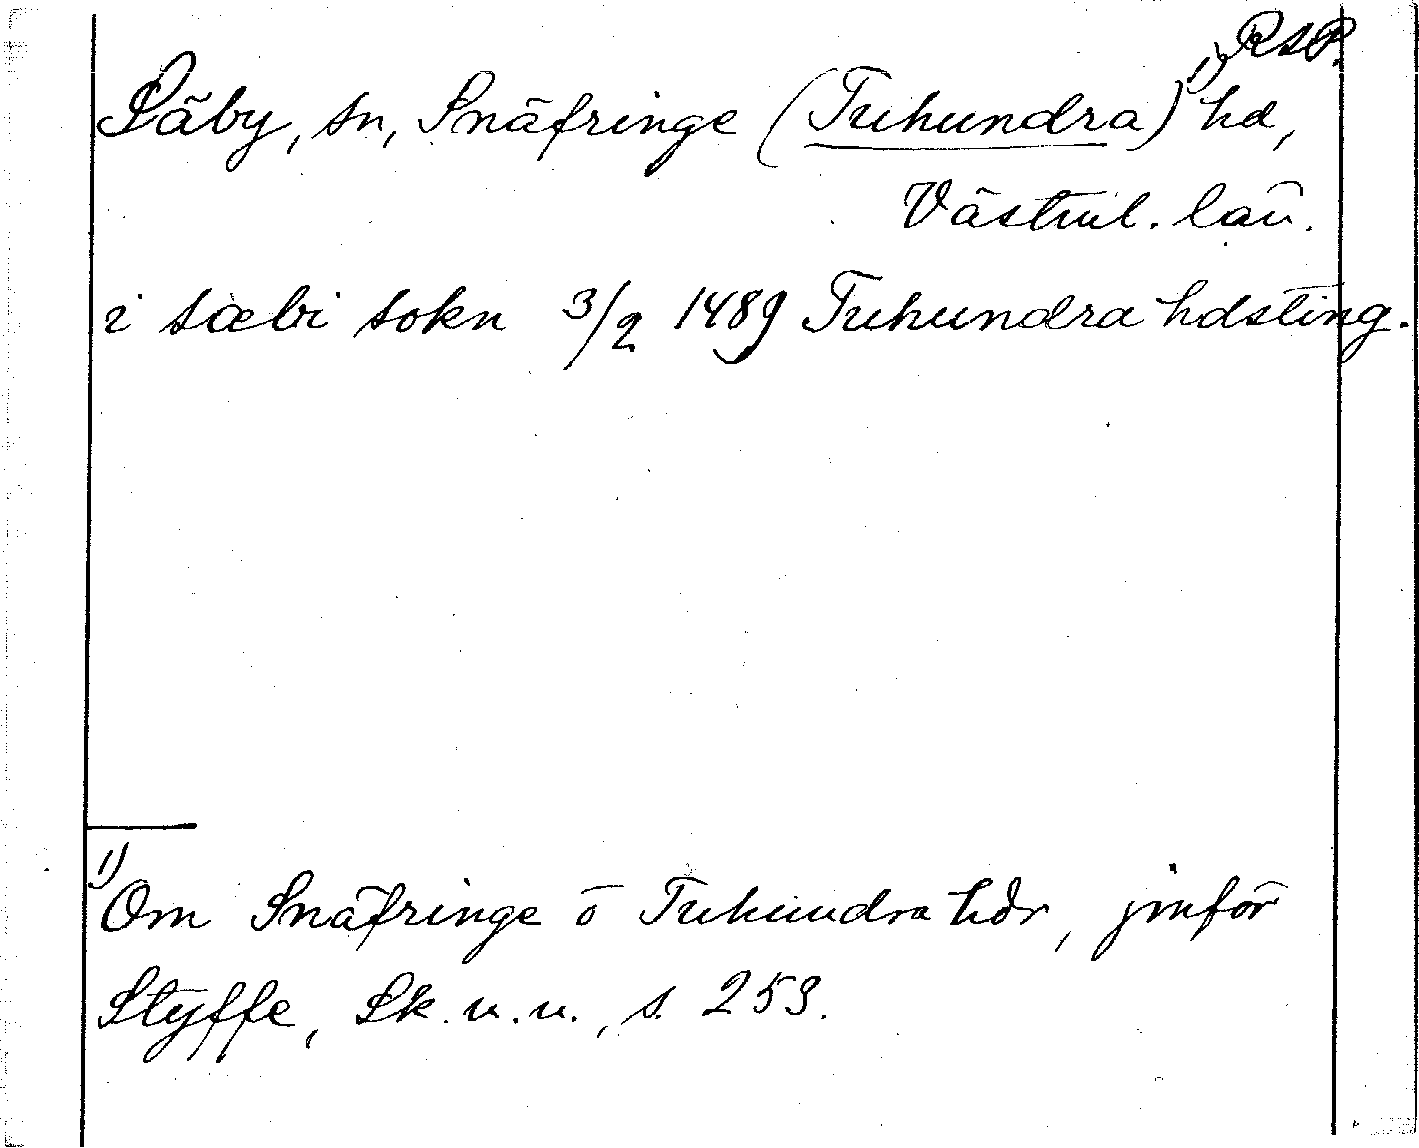 RSP.
Säby, sn, Snäfringe (Tuhundra)¹⁾ hd,
Västml. län.
i sæbi sokn 3/2 1489 Tuhundra hdsting.
¹⁾ Om Snäfringe o Tuhundra hdr, jmför
Styffe, Sk. u. u., s. 253.